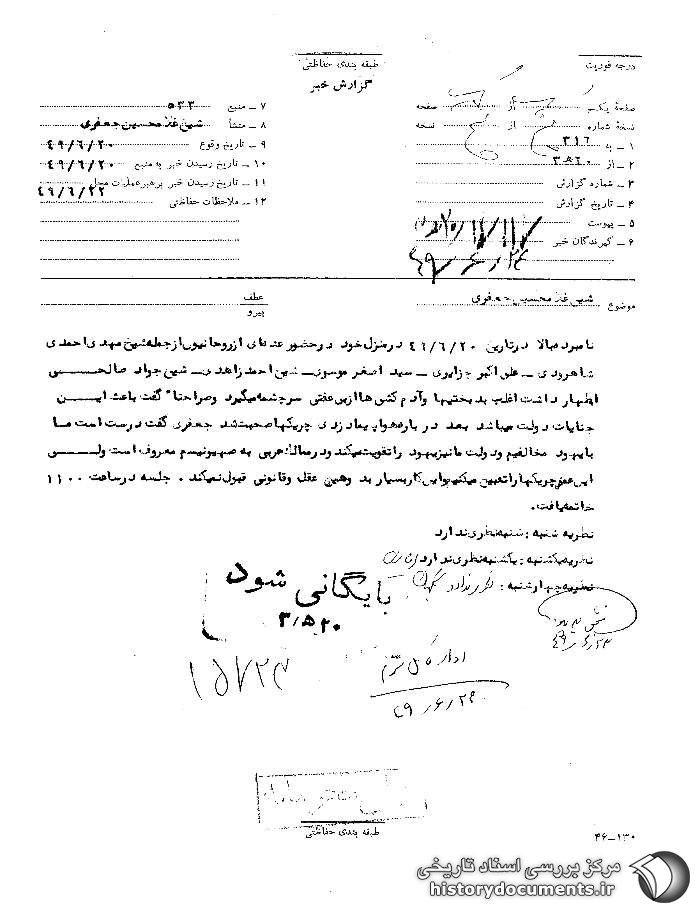 درجه فوریت
طبقه بندی حفاظتی
گزارش خبر
صفحهٔ یک از صفحه
نسخهٔ شماره از نسخه
۱ – به ۳۱۶
۲ – از
۳ – شماره گزارش
۴ – تاریخ گزارش
۵ – پیوست
۶ – گیرندگان خبر
۴۹/۶/۲۴
۷ – منبع ۵۳۳
۸ – منشأ شیخ غلامحسین جعفری
۹ – تاریخ وقوع ۴۹/۶/۲۰
۱۰ – تاریخ رسیدن خبر به منبع ۴۹/۶/۲۰
۱۱ – تاریخ رسیدن خبر برهبر عملیات محل ۴۹/۶/۲۲
۱۲ – ملاحظات حفاظتی
موضوع شیخ غلامحسین جعفری
عطف
پیرو
نامبرده بالا در تاریخ ۴۹/۶/۲۰ در منزل خود در حضور عده‌ای از روحانیون از جمله شیخ مهدی احمدی
شاهرودی – علی اکبر جزایری – سید اصغر موسوی – شیخ احمد زاهدی – شیخ جواد صالحی
اظهار داشت اغلب بدبختیها و آدم کشی‌ها از بی‌عفتی سرچشمه میگیرد و صراحتاً گفت باعث این
جنایات دولت میباشد بعد در باره هواپیما دزدی چریکها صحبت شد جعفری گفت درست است ما
با یهود مخالفیم و دولت ما نیز یهود را تقویت میکند و در ممالک عربی به صهیونیسم معروف است ولی
این عمل چریکها را تعیین میکنیم و این کار بسیار بد و هیچ عقل و قانونی قبول نمیکند . جلسه در ساعت ۱۱۰۰
خاتمه یافت.
نظریه شنبه : شنبه نظری ندارد
نظریه یکشنبه : یکشنبه نظری ندارد
نظریه چهارشنبه : نظری ندارد
بایگانی شود
۳/۵۲۰
۴۹/۶/۲۳
۱۵۷۲۳
اداره کل سوم
۴۹/۶/۲۶
طبقه بندی حفاظتی
۴۶–۱۳۰
مرکز بررسی اسناد تاریخی
historydocuments.ir